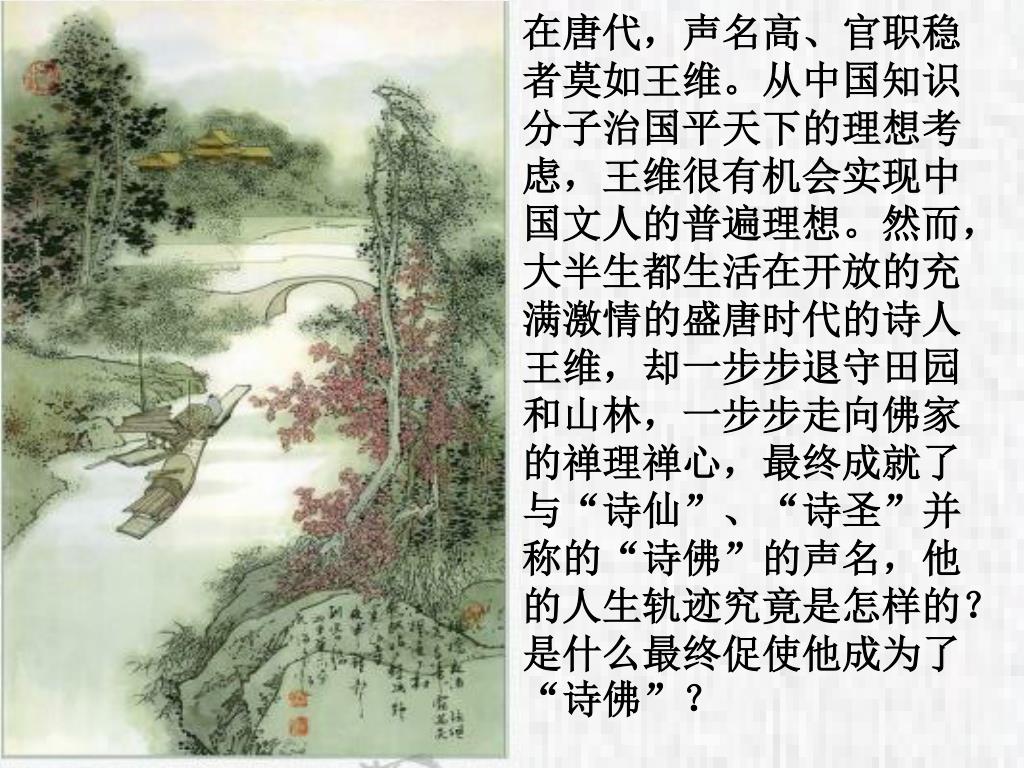 在唐代，声名高、官职稳
者莫如王维。从中国知识
分子治国平天下的理想考
虑，王维很有机会实现中
国文人的普遍理想。然而，
大半生都生活在开放的充
满激情的盛唐时代的诗人
王维，却一步步退守田园
和山林，一步步走向佛家
的禅理禅心，最终成就了
与“诗仙”、“诗圣”并
称的“诗佛”的声名，他
的人生轨迹究竟是怎样的？
是什么最终促使他成为了
“诗佛”？